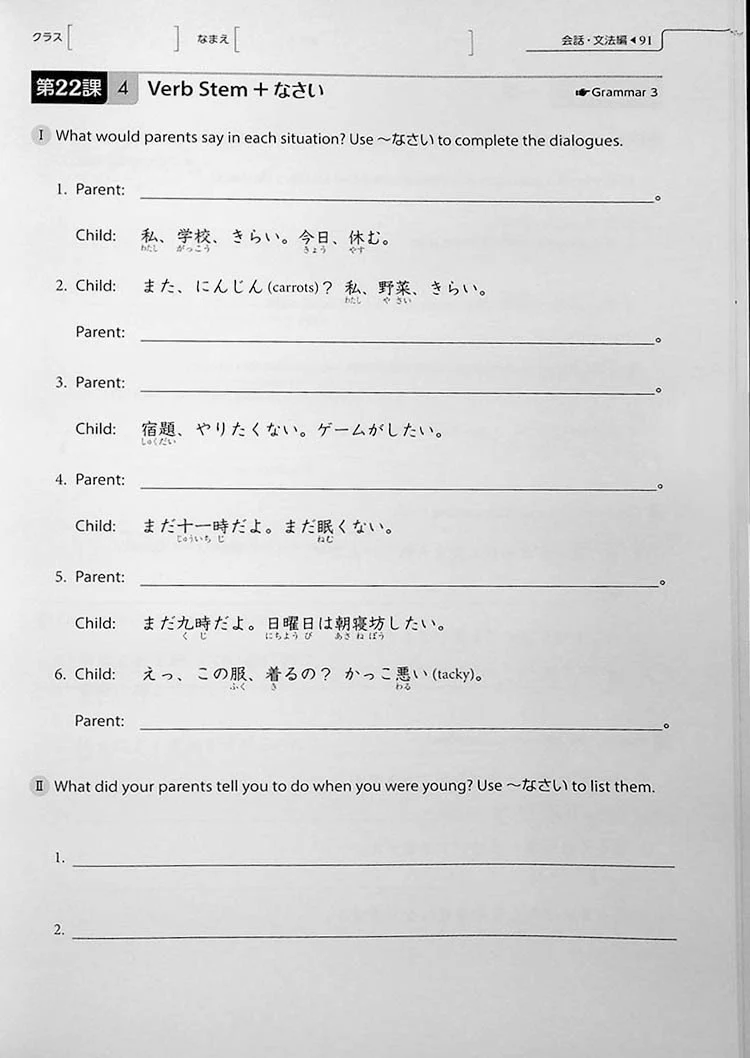 クラス[ ] なまえ[ ] 会話・文法編◀91
第22課 4 Verb Stem + なさい ☛Grammar 3
Ⅰ What would parents say in each situation? Use 〜なさい to complete the dialogues.
1. Parent: 。
Child: 私、学校、きらい。今日、休む。
わたし がっこう きょう やす
2. Child: また、にんじん(carrots)? 私、野菜、きらい。
わたし や さい
Parent: 。
3. Parent: 。
Child: 宿題、やりたくない。ゲームがしたい。
しゅくだい
4. Parent: 。
Child: まだ十一時だよ。まだ眠くない。
じゅういち じ ねむ
5. Parent: 。
Child: まだ九時だよ。日曜日は朝寝坊したい。
く じ にちよう び あさ ね ぼう
6. Child: えっ、この服、着るの? かっこ悪い(tacky)。
ふく き わる
Parent: 。
Ⅱ What did your parents tell you to do when you were young? Use 〜なさい to list them.
1.
2.